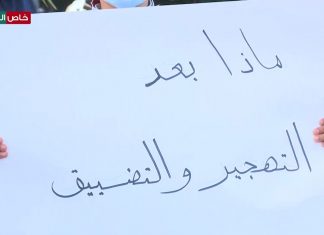 خاص
ماذا بعد
التهجير والتضييق